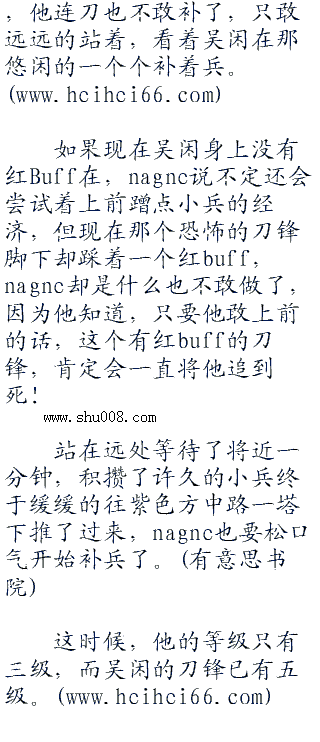 ，他连刀也不敢补了，只敢
远远的站着，看着吴闲在那
悠闲的一个个补着兵。
(www.hcihci66.com)
如果现在吴闲身上没有
红Buff在，nagnc说不定还会
尝试着上前蹭点小兵的经
济，但现在那个恐怖的刀锋
脚下却踩着一个红buff，
nagnc却是什么也不敢做了，
因为他知道，只要他敢上前
的话，这个有红buff的刀
锋，肯定会一直将他追到
死！
www.shu008.com
站在远处等待了将近一
分钟，积攒了许久的小兵终
于缓缓的往紫色方中路一塔
下推了过来，nagnc也要松口
气开始补兵了。(有意思书
院)
这时候，他的等级只有
三级，而吴闲的刀锋已有五
级。(www.hcihci66.com)